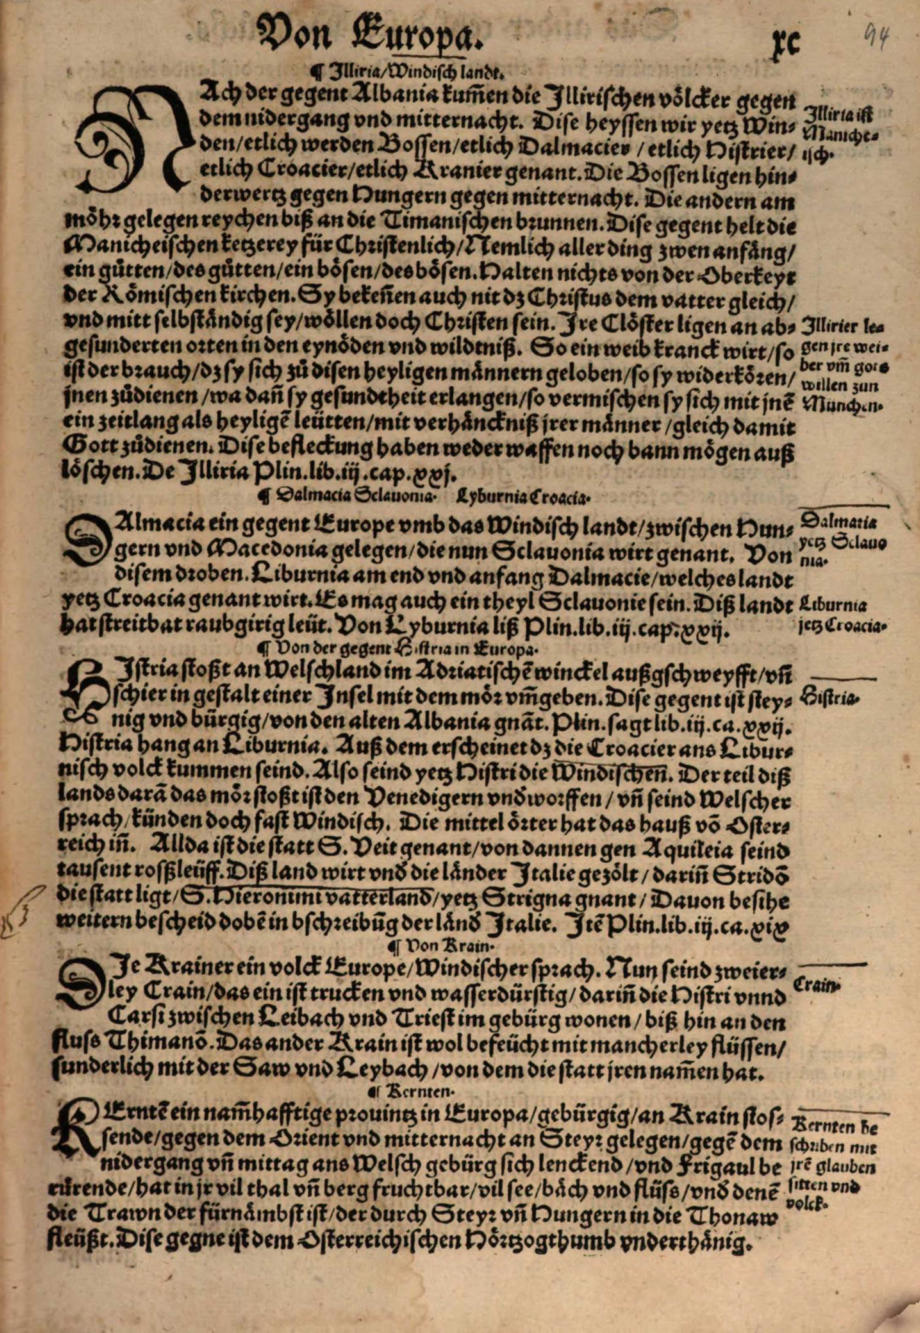 Von Europa.
xc
94
¶ Illiria/Windisch landt.
NAch der gegent Albania kum̃en die Illirischen völcker gegen
dem nidergang vnd mitternacht. Dise heyssen wir yetz Win⸗
den/etlich werden Bossen/etlich Dalmacier/etlich Histrier/
etlich Croacier/etlich Kranier genant. Die Bossen ligen hin⸗
derwertz gegen Hungern gegen mitternacht. Die andern am
möhr gelegen reychen biß an die Timanischen brunnen. Dise gegent helt die
Manicheischen ketzerey für Christenlich/Nemlich aller ding zwen anfäng/
ein gůtten/des gůtten/ein bösen/des bösen. Halten nichts von der Oberkeyt
der Römischen kirchen. Sy bekeñen auch nit dz Christus dem vatter gleich/
vnd mitt selbständig sey/wöllen doch Christen sein. Ire Clöster ligen an ab⸗
gesunderten orten in den eynöden vnd wildtniß. So ein weib kranck wirt/so
ist der brauch/dz sy sich zů disen heyligen männern geloben/so sy widerkören/
jnen zůdienen/wa dañ sy gesundtheit erlangen/so vermischen sy sich mit jnẽ
ein zeitlang als heyligẽ leütten/mit verhänckniß jrer männer/gleich damit
Gott zůdienen. Dise befleckung haben weder waffen noch bann mögen auß
löschen. De Illiria Plin.lib.iij.cap.xxj.
Illiria ist
Maniche⸗
isch.
Illirier le⸗
gen jre wei⸗
ber vm̃ gots
willen zun
München.
¶ Dalmacia Sclavonia. Lyburnia Croacia.
DAlmacia ein gegent Europe vmb das Windisch landt/zwischen Hun⸗
gern vnd Macedonia gelegen/die nun Sclauonia wirt genant. Von
disem droben. Liburnia am end vnd anfang Dalmacie/welches landt
yetz Croacia genant wirt. Es mag auch ein theyl Sclauonie sein. Diß landt
hat streitbat raubgirig leüt. Von Lyburnia liß Plin.lib.iij.cap.xxij.
Dalmatia
yetz Sclauo
nia.
Liburnia
jetz Croacia.
¶ Von der gegent Histria in Europa.
HIstria stoßt an Welschland im Adriatischẽ winckel außgschweyfft/vñ
schier in gestalt einer Insel mit dem mör vm̃geben. Dise gegent ist stey⸗
nig vnd bürgig/von den alten Albania gnãt. Plin. sagt lib.iij.ca.xxij.
Histria hang an Liburnia. Auß dem erscheinet dz die Croacier ans Libur⸗
nisch volck kummen seind. Also seind yetz Histri die Windischeñ. Der teil diß
lands darã das mör stoßt ist den Venedigern vnd̃worffen/vñ seind Welscher
sprach/künden doch fast Windisch. Die mittel örter hat das hauß võ Oster⸗
reich iñ. Allda ist die statt S. Veit genant/von dannen gen Aquileia seind
tausent roßßleüff. Diß land wirt vnd̃ die länder Italie gezölt/dariñ Stridõ
die statt ligt/S. Hieronimi vatterland/yetz Strigna gnant/Davon besihe
weitern bescheid dobẽ in bschreibũg der länd̃ Italie. Itẽ Plin.lib.iij.ca.xix
Histria.
¶ Von Krain.
DIe Krainer ein volck Europe/Windischer sprach. Nun seind zweier⸗
ley Crain/das ein ist trucken vnd wasserdürstig/dariñ die Histri vnnd
Carsi zwischen Leibach vnd Triest im gebürg wonen/biß hin an den
fluss Thimanõ. Das ander Krain ist wol befeücht mit mancherley flüssen/
sunderlich mit der Saw vnd Leybach/von dem die statt jren nam̃en hat.
Crain.
¶ Kernten.
KErntẽ ein nam̃hafftige prouintz in Europa/gebürgig/an Krain stos⸗
sende/gegen dem Orient vnd mitternacht an Steyr gelegen/gegẽ dem
nidergang vñ mittag ans Welsch gebürg sich lenckend/vnd Frigaul be
rürende/hat in jr vil thal vñ berg fruchtbar/vil see/bäch vnd flüss/vnd̃ denẽ
die Trawn der fürnämbst ist/der durch Steyr vñ Hungern in die Thonaw
fleüßt. Dise gegne ist dem Osterreichischen Hörtzogthumb vnderthänig.
Kernten be
schriben mit
jrẽ glauben
sitten vnd
volck.